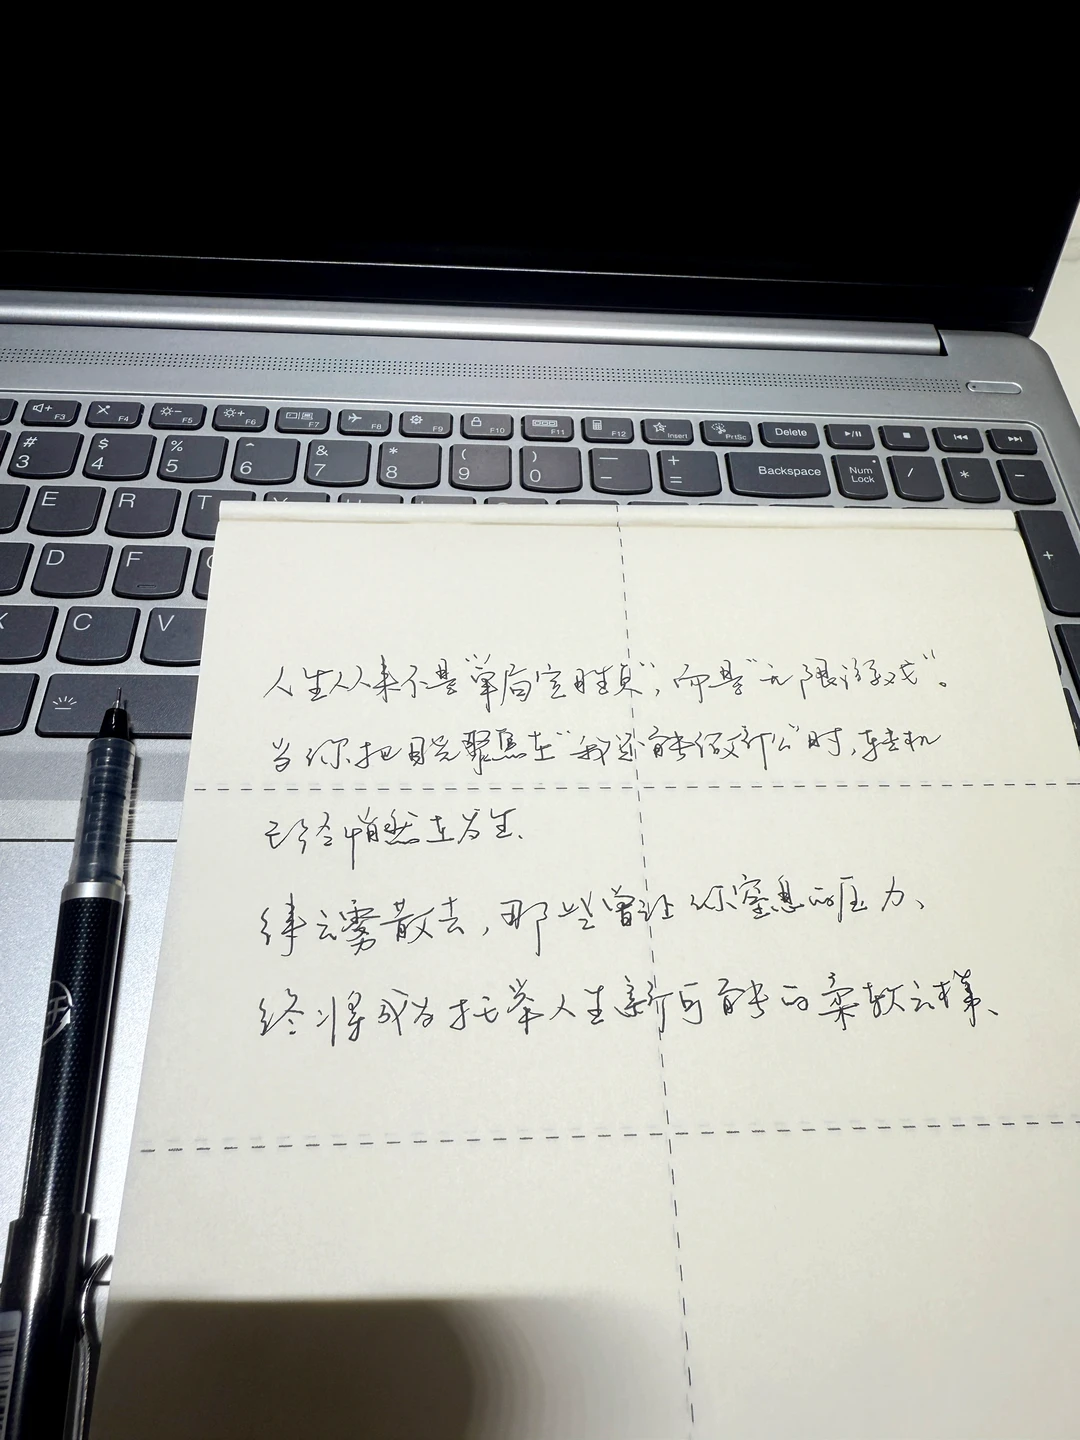 F3 F4 F5 F6 F7 F8 F9 F10 F11 F12 Insert PrtSc Delete
# 3 $ 4 % 5 ^ 6 & 7 * 8 ( 9 ) 0 — - + = Backspace Num Lock / * -
E R T
D F +
C V
人生从来不是“单局定胜负”，而是“无限游戏”。
当你把目光聚焦在“我还能做什么”时，转机
已经悄然在发生、
待云雾散去，那些曾让你窒息的压力、
终将成为托举人生新可能的柔软云梯、